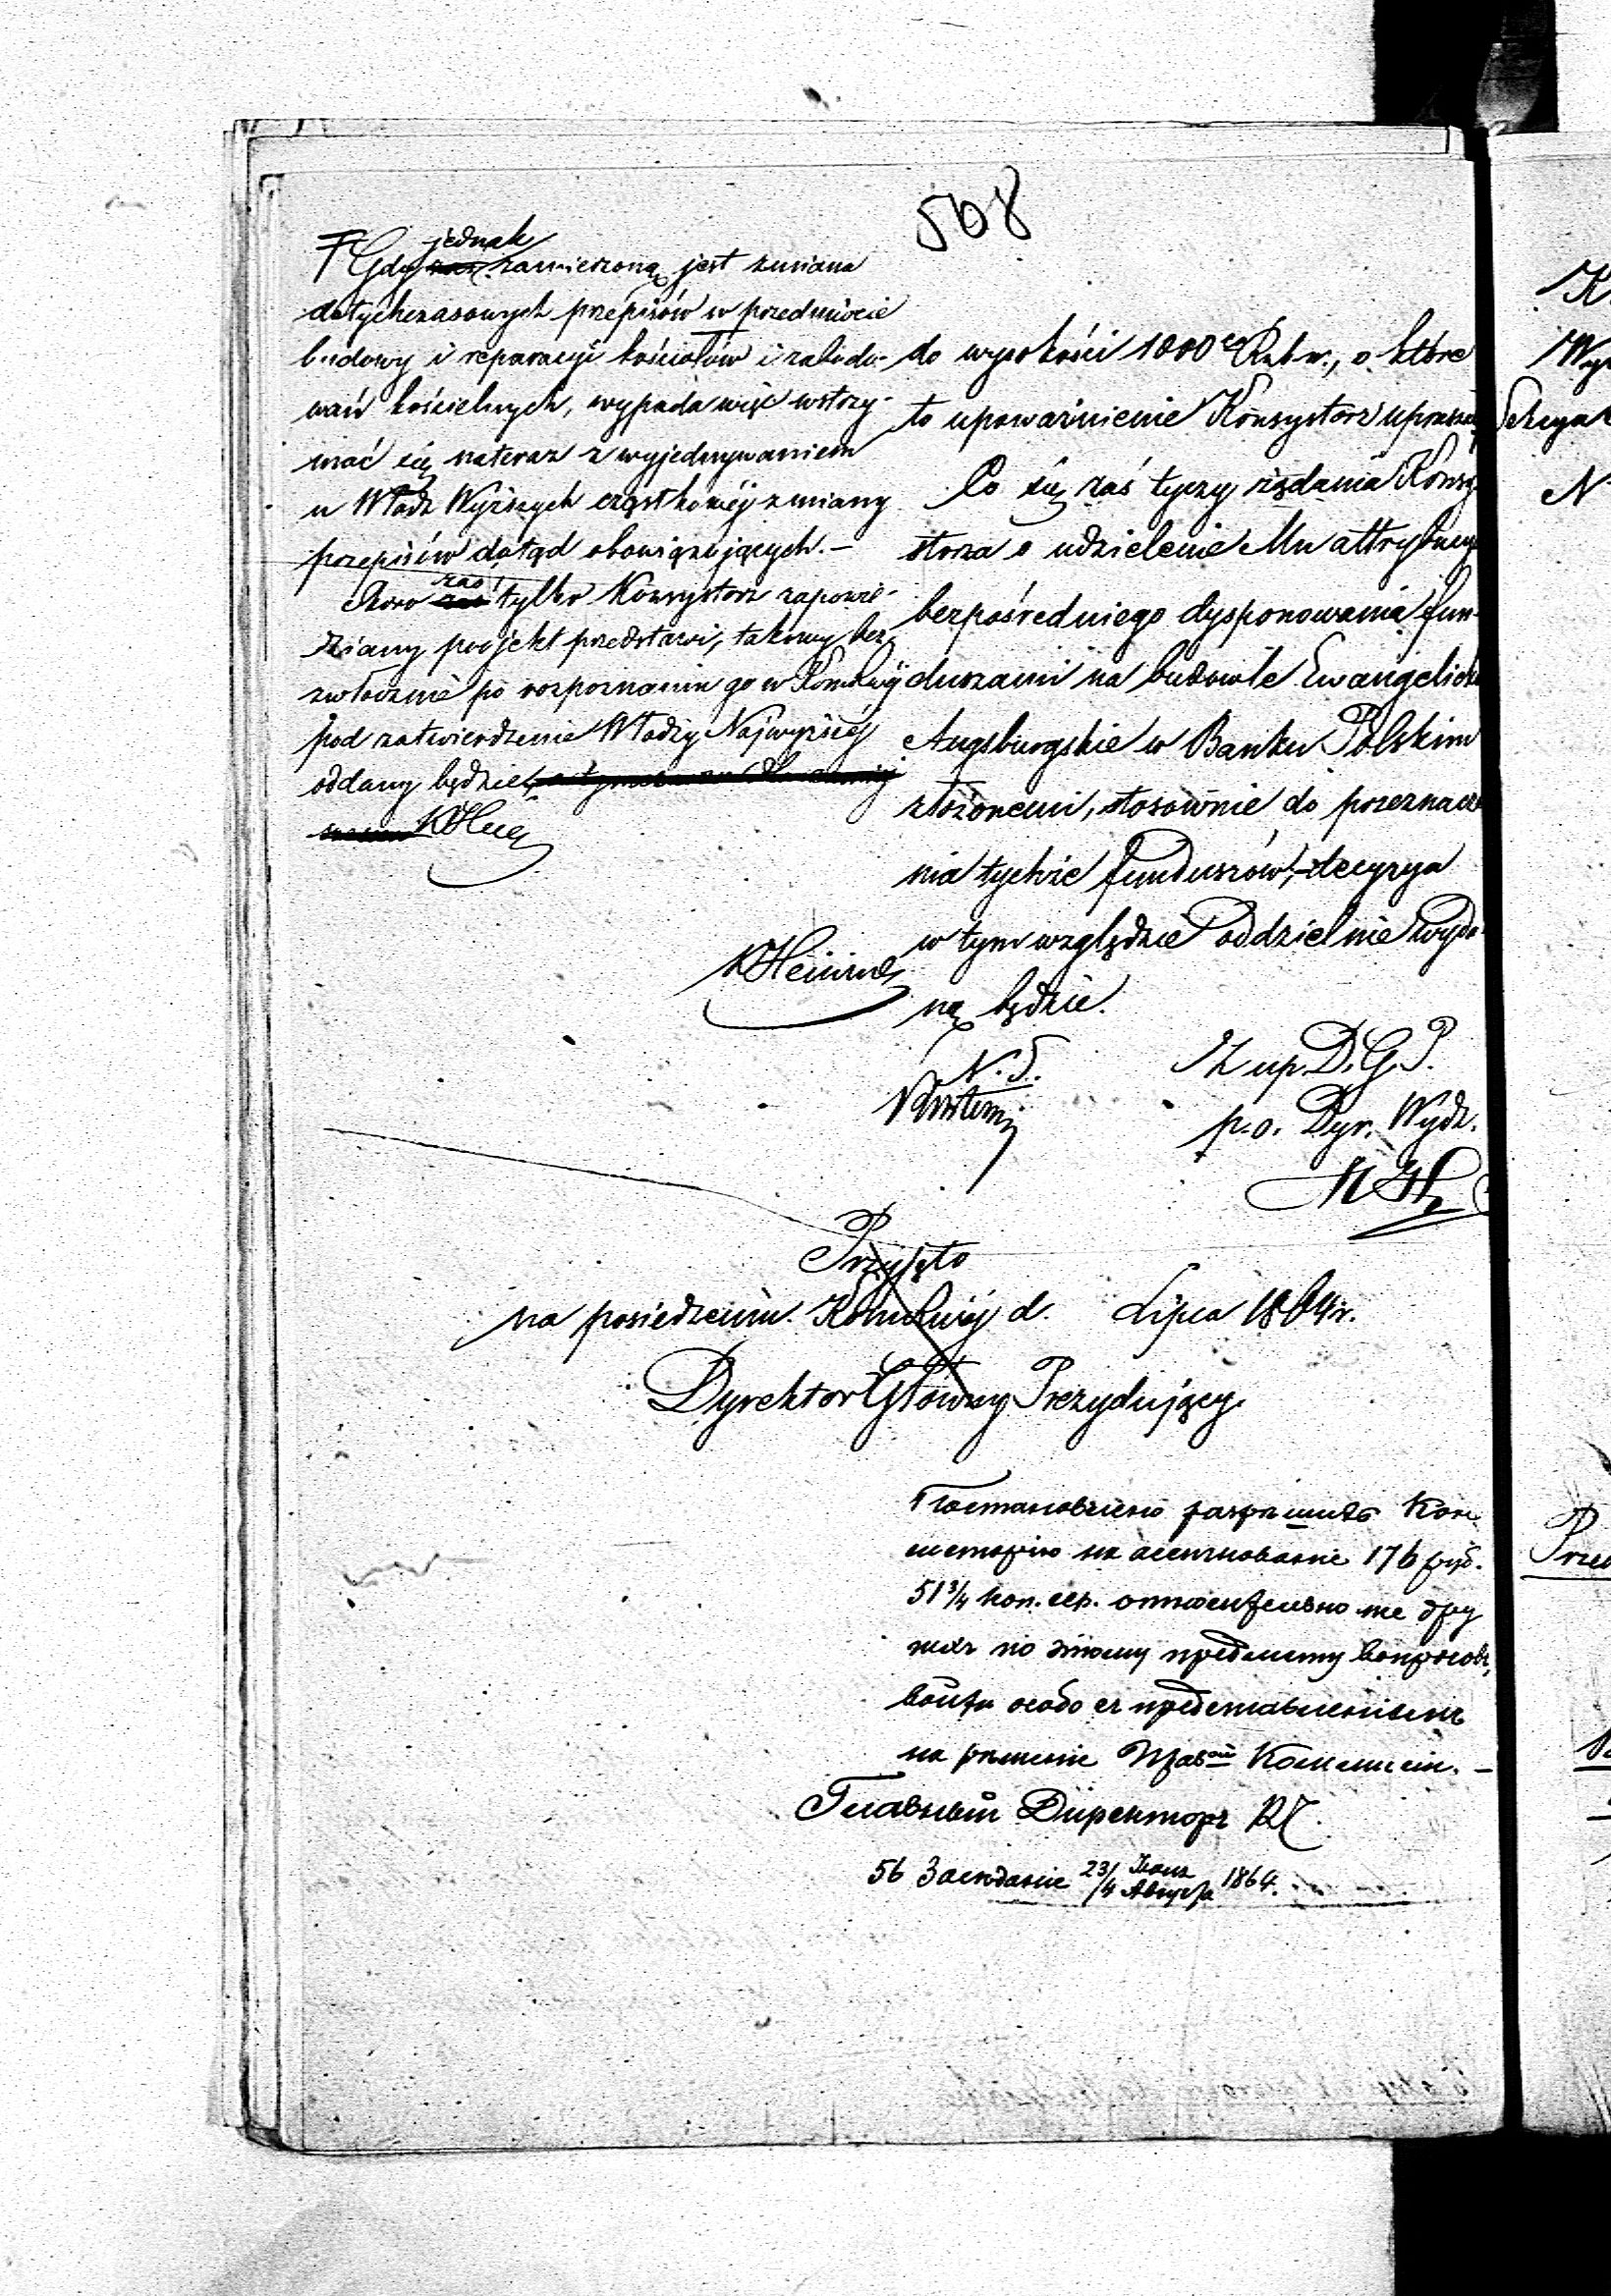 508
jednak
Gdy zamierzoną jest zmiana
dotychczasowych przepisów w przedmiocie
budowy i reparacyi kościołów i zabudo-
wań kościelnych, wypada więc wstrzy-
mać się nateraz z wyjednywaniem
u Władz Wyższych cząstkowéj zmiany
przepisów dotąd obowiązujących. —
zaś
Skoro tylko Konsystorz zapowie-
dziany projekt przedstawi, takowy bez-
zwłocznie po rozpoznaniu go w Kom. Rząd.
pod zatwierdzenie Władzy Najwyższéj
oddany będzie
do wysokości 1000 Rubr., o które
to upoważnienie Konsystorz uprasza
Co się zaś tyczy żądania Konsy-
storza o udzielenie Mu attrybucyi
bezpośredniego dysponowania fun-
duszami na budowle Ewangelicko
Augsburgskie w Banku Polskim
złożonemi, stosownie do przeznacze
nia tychże funduszów, decyzya
w tym względzie oddzielnie wyda-
ną będzie.
N. S.
Z up. D. G. P.
p. o. Dyr. Wydz.
Przyjęto
na posiedzeniu d. Lipca 1864 r.
Dyrektor Główny Prezydujący
Постановлено разрѣшить Кон-
систорію на ассигнованіе 176 руб.
51 3/4 коп. сер. относительно же дру
гихъ по этому предмету вопросовъ,
войти особо съ представленіемъ
на рѣшеніе Прав. Коммиссіи. —
Главный Директоръ
56 Засѣданіе 23/4 Іюля/Августа 1864.